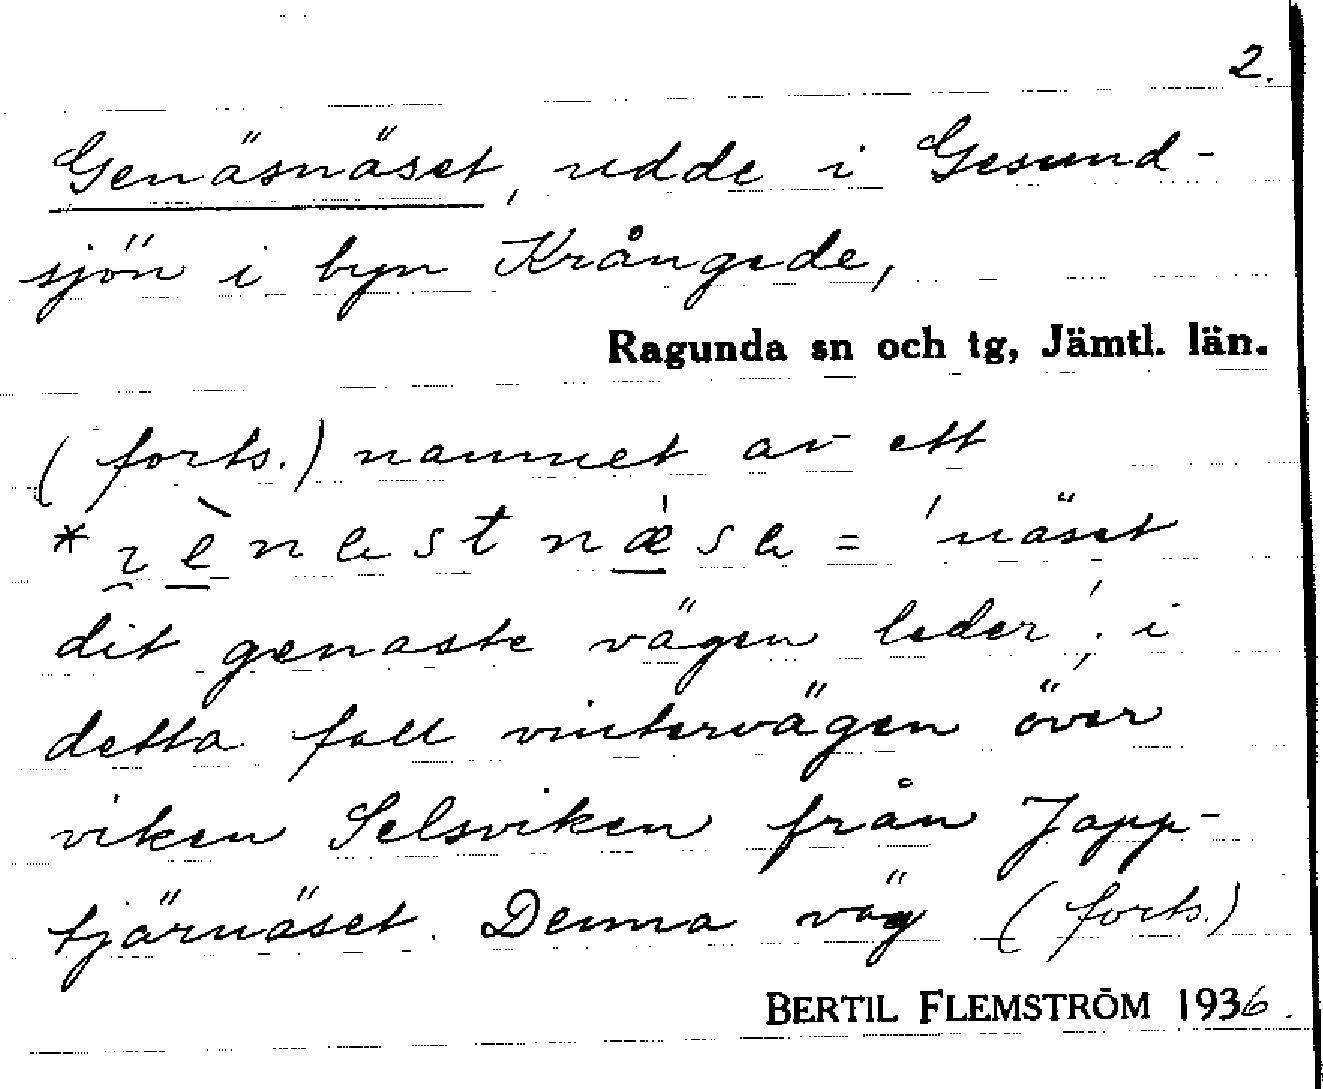 2.
Genäsnäset, udde i Gesund-
sjön i byn Krångede,
Ragunda sn och tg, Jämtl. län.
(forts.) namnet av ett
dit genaste vägen leder'; i
detta fall vintervägen över
viken Selsviken från Japp-
tjärnäset. Denna väg (forts.)
BERTIL FLEMSTRÖM 1936.